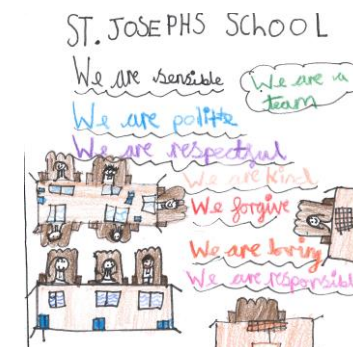 ST. JOSEPHS SCHOOL
We are sensible
We are a
team
We are polite
We are respectful
We are kind
We forgive
We are loving
We are responsibl